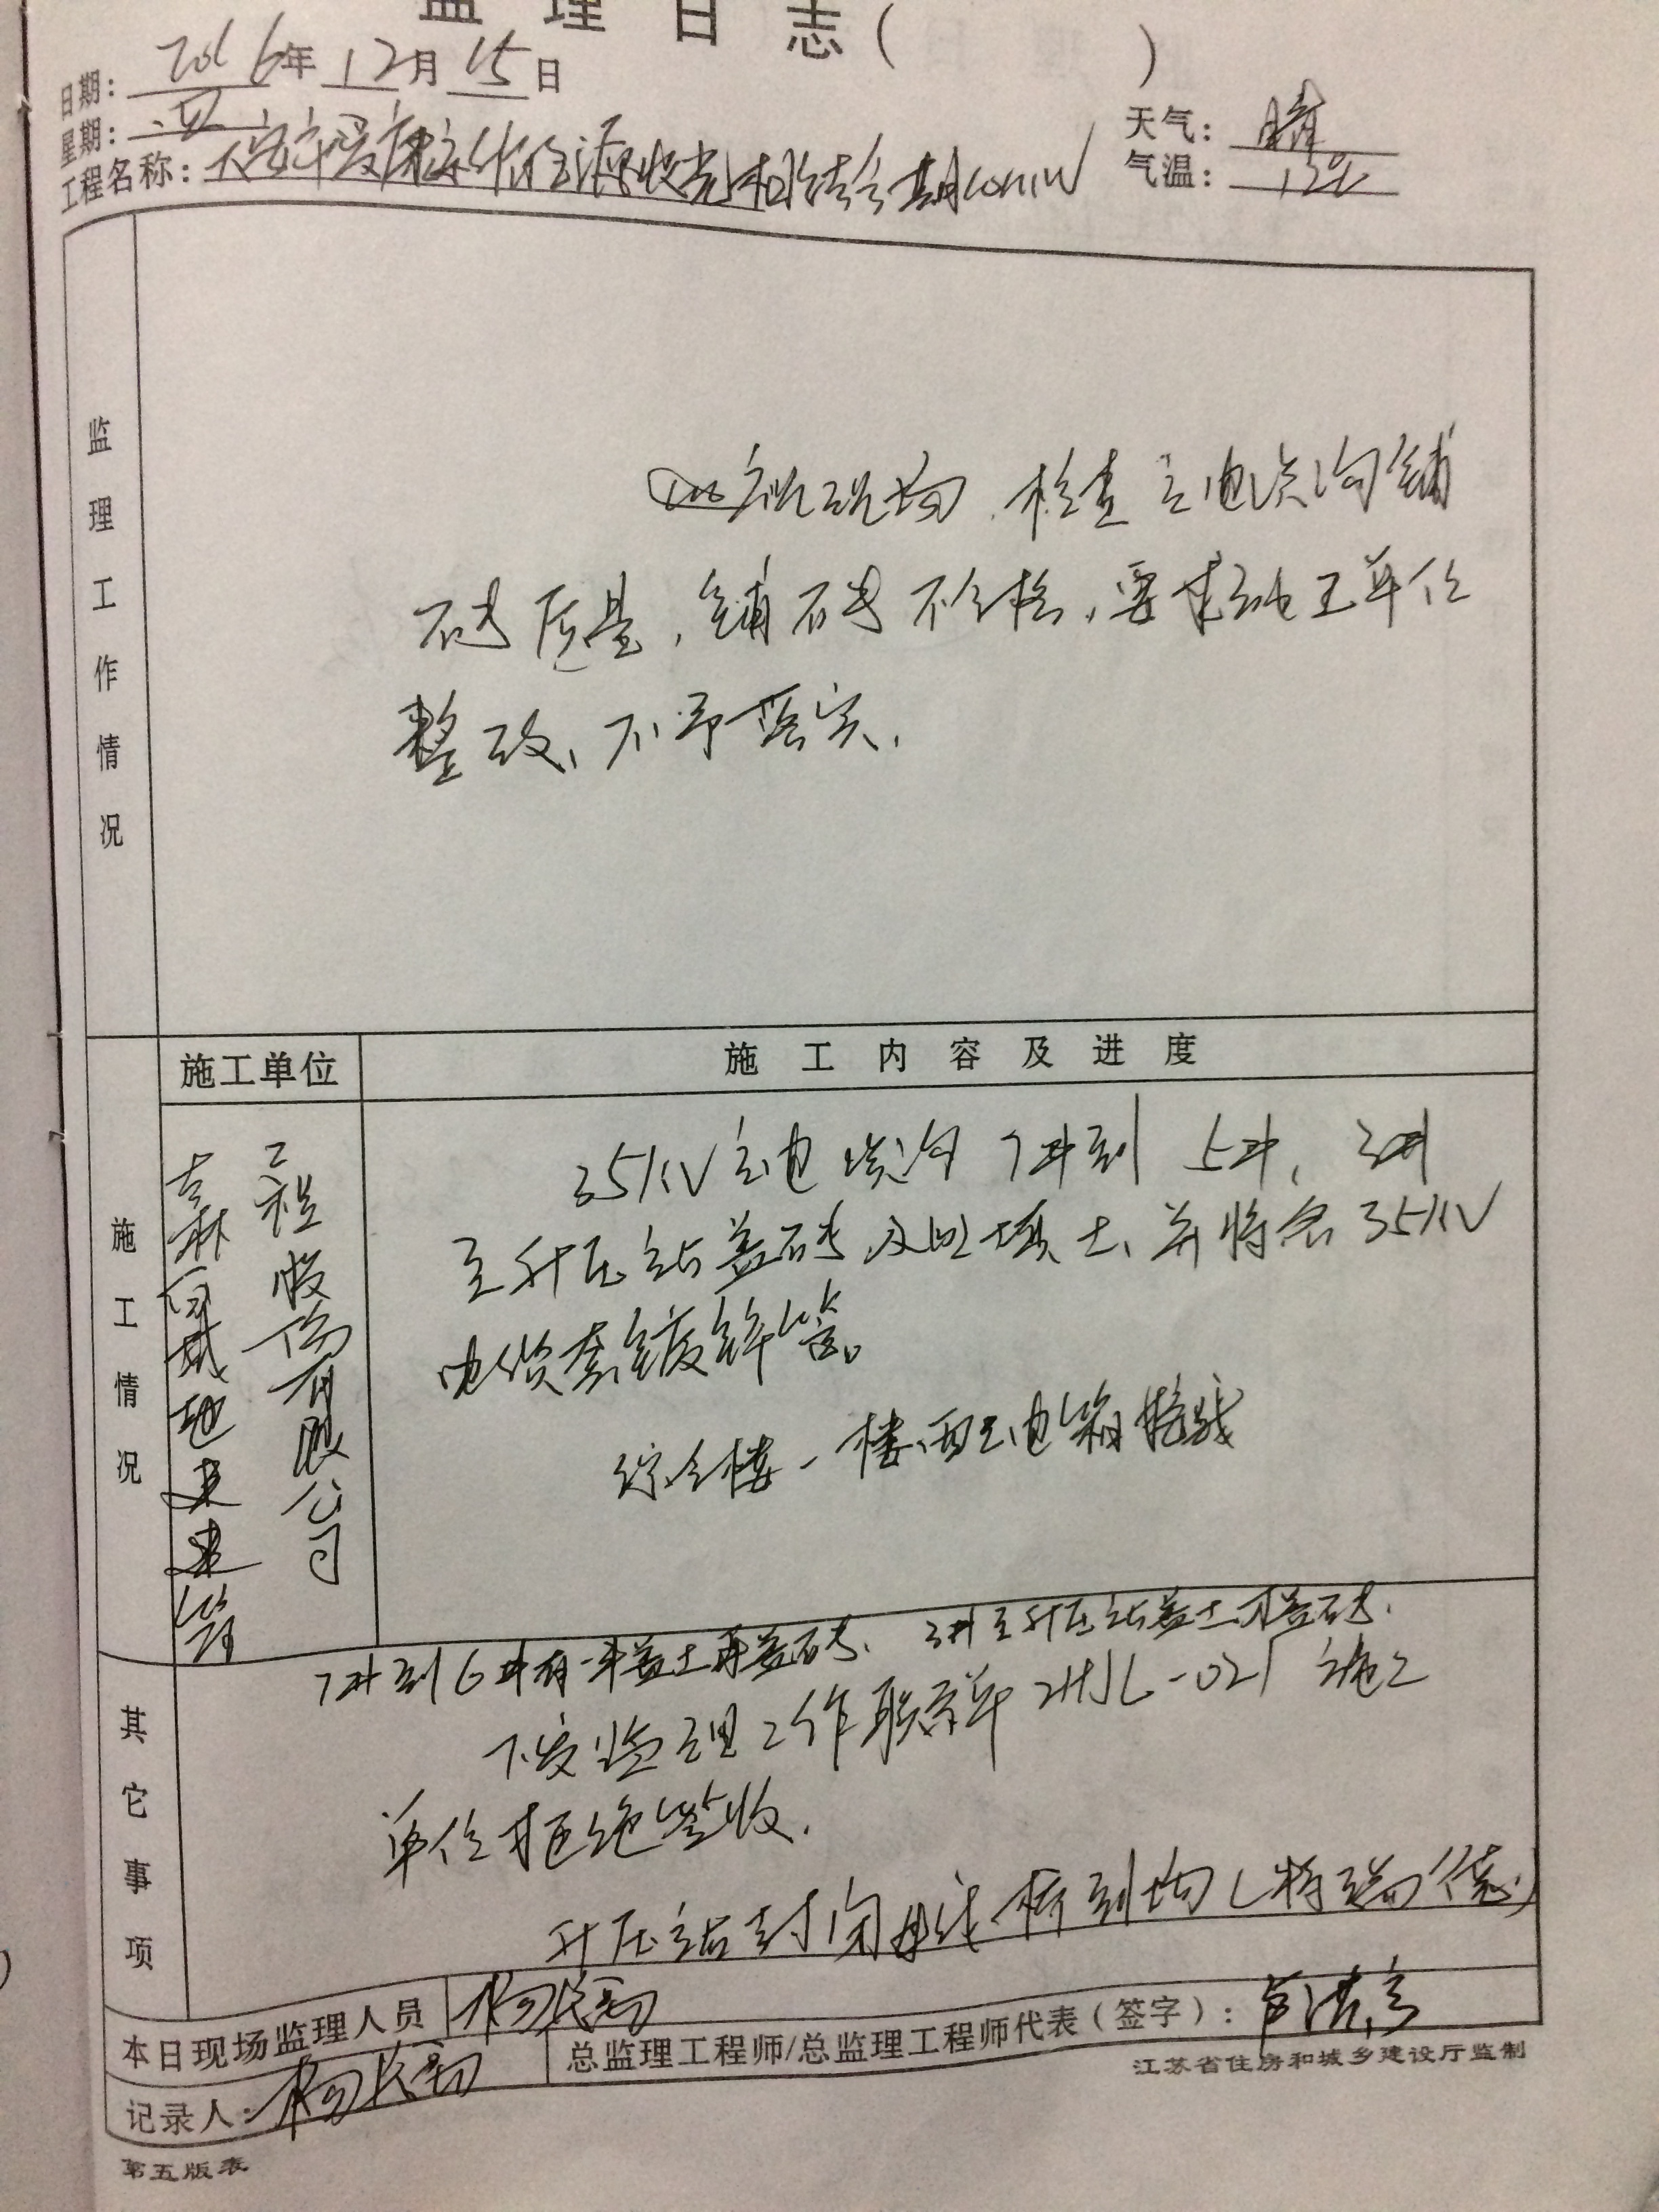 监理日志( )
日期: 2016年12月15日
星期: 四
天气: 晴
气温: 12℃
工程名称: 光相结合 期
监理工作情况
巡视现场,检查主电缆沟铺
砖质量,铺砖不合格,要求施工单位
整改,不予落实,
施工单位
施工内容及进度
施工情况
吉林百城地来建筑
工程股份有限公司
35KV主电缆沟7#到5#,3#
至升压站盖砖及回填土,并将各35KV
电缆套镀锌管。
综合楼一楼配电箱接线
其它事项
7#到6#有一半盖土再盖砖、3#至升压站盖土才盖砖.
下发监理工作联系单ZHJL-021 施工
单位拒绝签收.
升压站封闭母线桥到场(特瑞德)
本日现场监理人员
总监理工程师/总监理工程师代表(签字):
记录人:
江苏省住房和城乡建设厅监制
第五版表